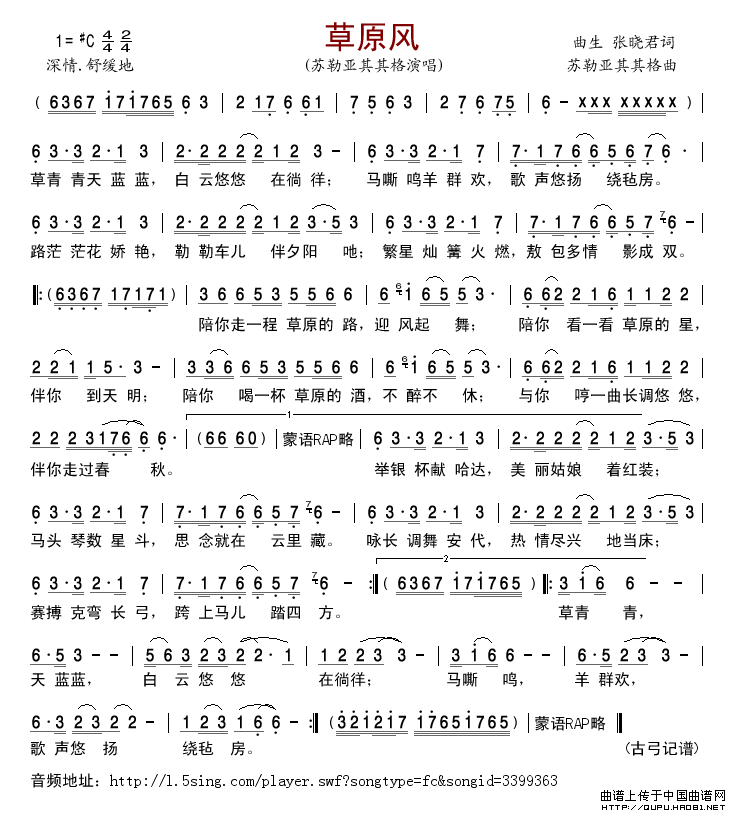 草原风
1= #C 4/4 2/4
曲生 张晓君词
深情.舒缓地
(苏勒亚其其格演唱)
苏勒亚其其格曲
( 6367 171765 6 3 | 2 17 6 61 | 7 5 6 3 | 2 7 6 75 | 6 - xxx xxxxx |
6 3·3 2·1 3 | 2·2 2 2 2 2 1 2 3 - | 6 3·3 2·1 7 | 7·1 7 6 6 5 6 7 6 · |
草青 青天 蓝 蓝， 白 云悠悠 在徜 徉； 马嘶 鸣羊 群 欢， 歌 声悠扬 绕毡房。
6 3·3 2·1 3 | 2·2 2 2 2 2 1 2 3·5 3 | 6 3·3 2·1 7 | 7·1 7 6 6 5 7 7 6 - |
路茫 茫花 娇 艳， 勒 勒车儿 伴夕阳 吔； 繁星 灿篝 火 燃，敖 包多情 影成 双。
‖:( 6367 17171 ) | 3 6 6 5 3 5 5 6 6 6 | 6 6 1 6 5 5 3 · | 6 6 2 2 1 6 1 1 2 2 |
陪你走一程 草原的 路，迎 风起 舞； 陪你 看一看 草原的 星，
2 2 1 1 5 · 3 - | 3 3 6 6 5 3 5 5 6 6 | 6 6 1 6 5 5 3 · | 6 6 2 2 1 6 1 1 2 2 |
伴你 到天 明； 陪你 喝一杯 草原的 酒，不 醉不 休； 与你 哼一曲长调悠 悠，
1
2 2 2 3 1 7 6 6 6 · | ( 66 60 ) | 蒙语RAP略 | 6 3·3 2·1 3 | 2·2 2 2 2 2 1 2 3·5 3 |
伴你走过春 秋。 举银 杯献 哈达， 美 丽姑娘 着红装；
6 3·3 2·1 7 | 7·1 7 6 6 5 7 7 6 - | 6 3·3 2·1 3 | 2·2 2 2 2 2 1 2 3·5 3 |
马头 琴数 星 斗， 思 念就在 云里 藏。 咏长 调舞 安 代， 热 情尽兴 地当床；
2
6 3·3 2·1 7 | 7·1 7 6 6 5 7 7 6 - - :‖ ( 6367 171765 ) ‖: 3 1 6 6 |
赛搏 克弯 长 弓， 跨 上马儿 踏四 方。 草青 青，
6·5 3 - - | 5 6 3 2 3 2 2 · 1 | 1 2 2 3 3 - | 3 1 6 6 - - | 6·5 3 3 - |
天 蓝蓝， 白 云 悠 悠 在徜徉； 马嘶 鸣， 羊 群欢，
6·3 2 3 2 2 - | 1 2 3 1 6 6 - :‖ ( 3 2 1 2 1 7 1 7 6 5 1 7 6 5 ) | 蒙语RAP略 ‖
歌 声悠 扬 绕毡 房。 (古弓记谱)
音频地址：http://l.5sing.com/player.swf?songtype=fc&songid=3399363
曲谱上传于中国曲谱网
http://QUPU.HAO81.NET